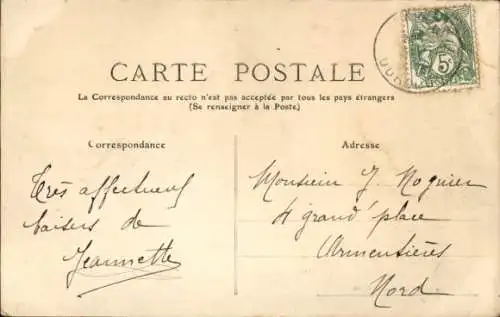 CARTE POSTALE
La Correspondance au recto n'est pas acceptée par tous les pays étrangers
(Se renseigner à la Poste.)
Correspondance
Adresse
Très affectueux
baisers de
Jeannette
Monsieur J. Nognier
4 grand' place
Armentières
Nord
5